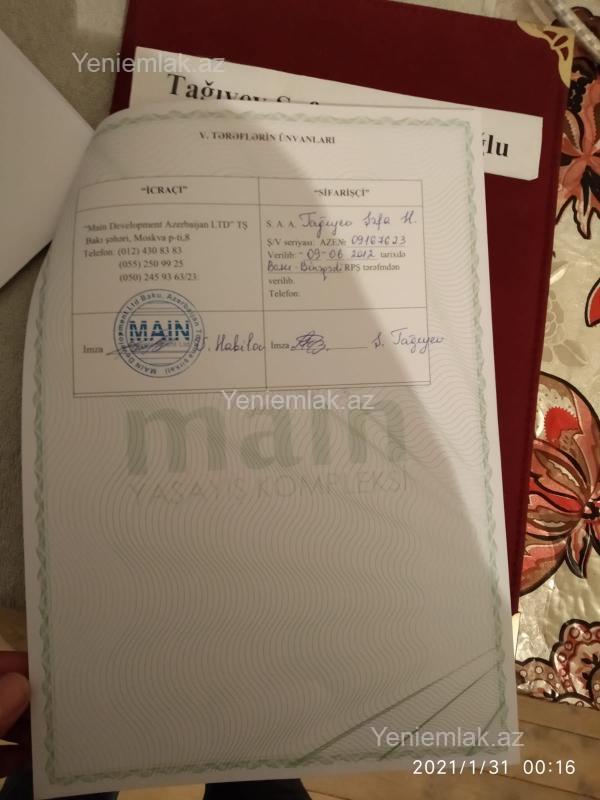 Yeniemlak.az
Tağıyev Səfa
ğlu
V. TƏRƏFLƏRİN ÜNVANLARI
"İCRAÇI"
"Main Development Azerbaijan LTD" TŞ
Bakı şəhəri, Moskva p-ti,8
Telefon: (012) 430 83 83
(055) 250 99 25
(050) 245 93 63/23:
"SİFARİŞÇİ"
S. A. A. Tağıyev Səfa H.
Ş/V seriyası: AZE№ 09167623
Verilib: "09" 06 2012 tarixdə
RPŞ tərəfindən
verilib.
Telefon:
İmza
MAIN
Main Development Ltd Baku, Azerbaijan
H. Həbilov
İmza
S. Tağıyev
Yeniemlak.az
main
YAŞAYIŞ KOMPLEKSİ
Yeniemlak.az
2021/1/31 00:16